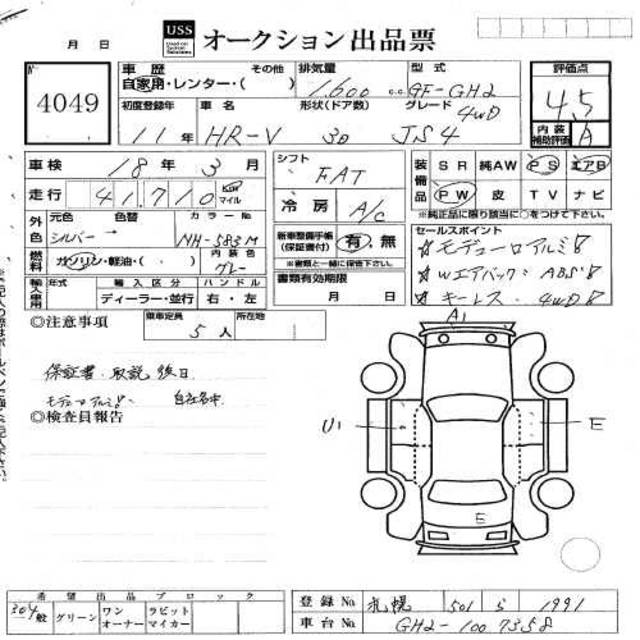 USS
オークション 出品票
月 日
No.
4049
車歴 その他
自家用・レンター・( )
排気量
1600 c.c.
型式
GF-GH2
評価点
4.5
内装補助評価 A
初度登録年
11年
車名
HR-V
形状(ドア数)
3D
グレード
4WD
JS4
車検 18年 3月
シフト
FAT
装備品 SR 純AW PS エアB
PW 皮 TV ナビ
※純正品に限り該当に○をつけて下さい。
走行 41,710 Km マイル
冷房 A/C
外色 元色 色替 カラーNo.
シルバー NH-583M
新車整備手帳(保証書付) 有.無
※書類と一緒に保管下さい。
セールスポイント
☆モデューロアルミ
☆Wエアバック・ABS
☆キーレス・4WD
燃料 ガソリン・軽油・( ) 内装色 グレー
書類有効期限
月 日
輸入車用 年式 輸入区分 ハンドル
ディーラー・並行 右・左
◎注意事項
乗車定員 5人
所在地
保証書・取説 後日
モデューロアルミ
自社名中
◎検査員報告
A1
U1
E
E
希望出品ブロック
304 一般 グリーン ワンオーナー ラビットマイカー
登録No. 札幌 501 ら 1991
車台No. GH2-1007358